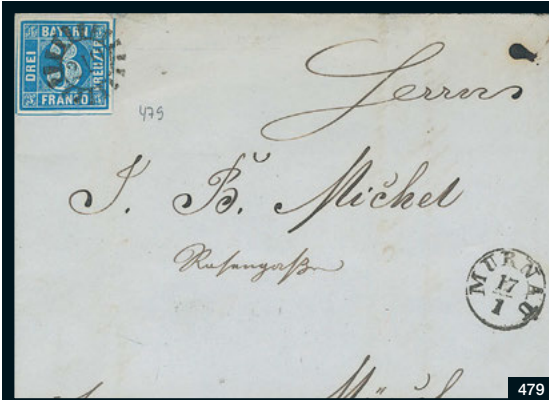 BAYERN
DREI
KREUZER
FRANCO
479
Herrn
J. B. Michel
Rosengaße
MURNAU
17
1
479